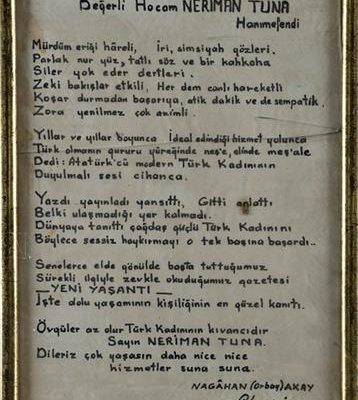 Değerli Hocam NERİMAN TUNA
Hanımefendi
Mürdüm eriği hâreli, İri, simsiyah gözleri.
Parlak nur yüz, tatlı söz ve bir kahkaha
Siler yok eder dertleri.
Zeki bakışlar etkili, Her dem canlı hareketli
Koşar durmadan başarıya, atik dakik ve de sempatik.
Zora yenilmez çok azimli.
Yıllar ve yıllar boyunca İdeal edindiği hizmet yolunca
Türk olmanın gururu yüreğinde neş'e, elinde meş'ale
Dedi: Atatürk'cü modern Türk Kadınının
Duyulmalı sesi cihanca.
Yazdı yayınladı yansıttı, Gitti anlattı
Belki ulaşmadığı yer kalmadı.
Dünyaya tanıttı çağdaş güçlü Türk Kadınını
Böylece sessiz haykırmayı o tek başına başardı..
Senelerce elde gönülde başta tuttuğumuz
Sürekli ilgiyle zevkle okuduğumuz gazetesi
— YENİ YAŞANTI —
İşte dolu yaşamının kişiliğinin en güzel kanıtı.
Övgüler az olur Türk Kadınının kıvancıdır
Sayın NERİMAN TUNA.
Dileriz çok yaşasın daha nice nice
hizmetler suna suna.
NAGÂHAN (Orbay) AKAY